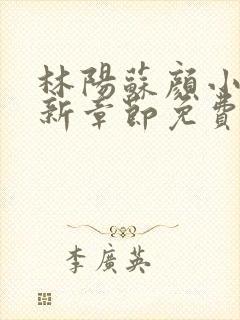 林陽蘇顏小
新章節免費
李廣英